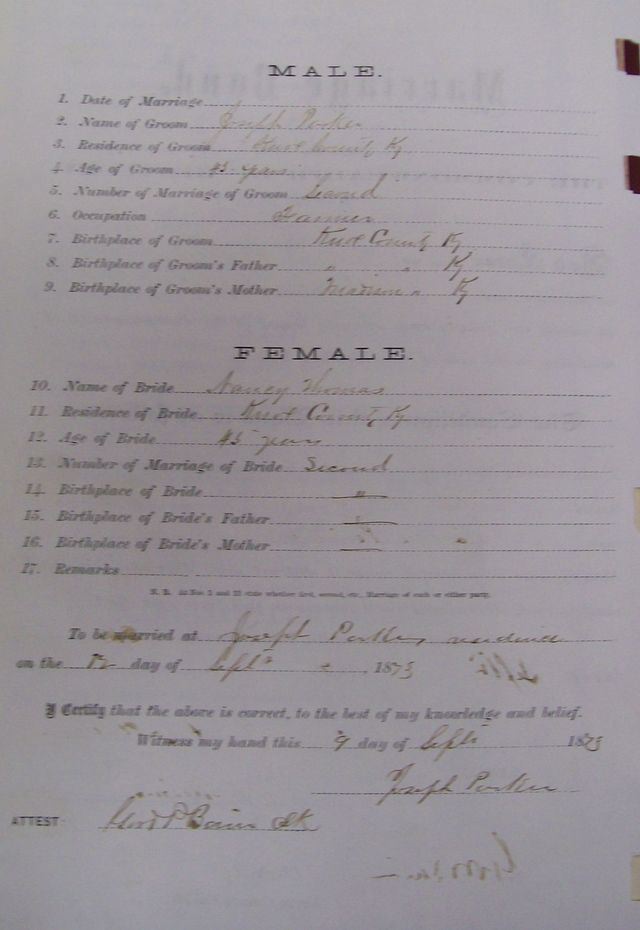 MALE.
1. Date of Marriage
2. Name of Groom Joseph Parker
3. Residence of Groom Knox County Ky
4. Age of Groom 45 years
5. Number of Marriage of Groom Second
6. Occupation Farmer
7. Birthplace of Groom Knox County Ky
8. Birthplace of Groom's Father " " Ky
9. Birthplace of Groom's Mother Madison " Ky
FEMALE.
10. Name of Bride Nancy Thomas
11. Residence of Bride Knox County Ky
12. Age of Bride 45 years
13. Number of Marriage of Bride Second
14. Birthplace of Bride "
15. Birthplace of Bride's Father
16. Birthplace of Bride's Mother
17. Remarks
N. B. At Nos. 5 and 13 state whether first, second, etc., Marriage of each or either party.
To be married at Joseph Parkers residence
on the 12 day of Sept , 1873
I Certify that the above is correct, to the best of my knowledge and belief.
Witness my hand this 9 day of Sept 1873
Joseph Parker
ATTEST: Clk